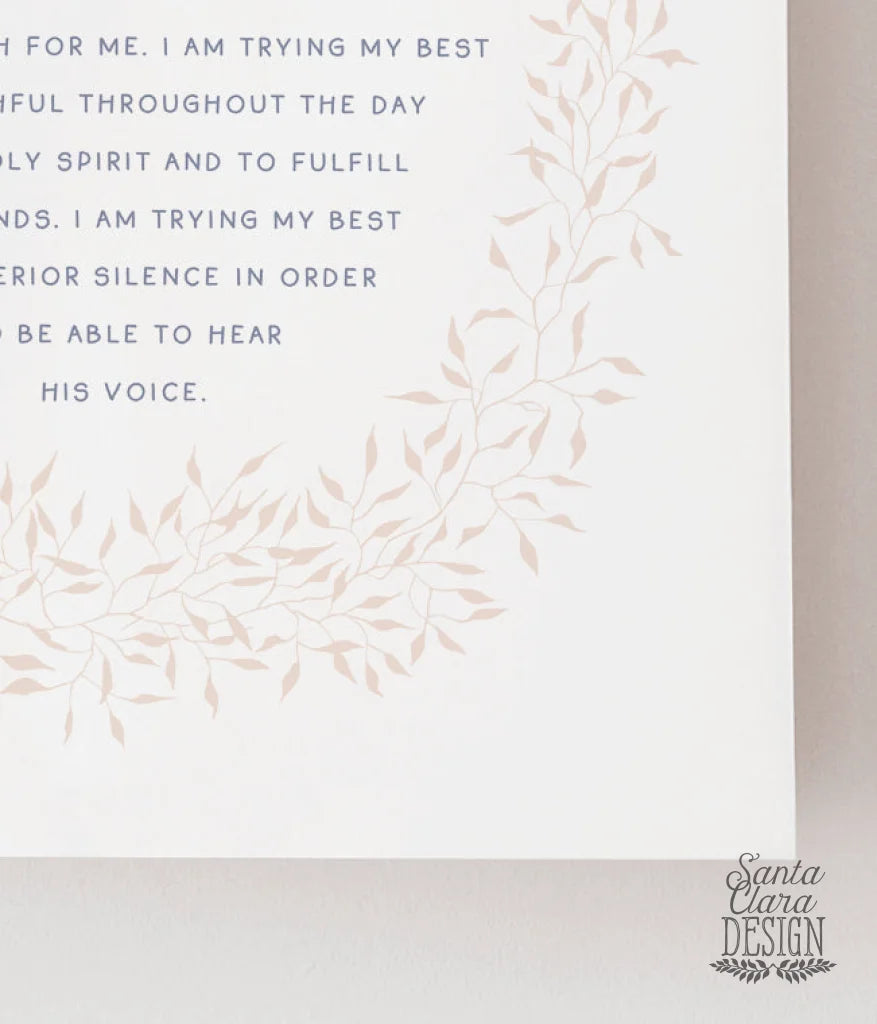 H FOR ME. I AM TRYING MY BEST
HFUL THROUGHOUT THE DAY
OLY SPIRIT AND TO FULFILL
NDS. I AM TRYING MY BEST
ERIOR SILENCE IN ORDER
O BE ABLE TO HEAR
HIS VOICE.
Santa
Clara
DESIGN